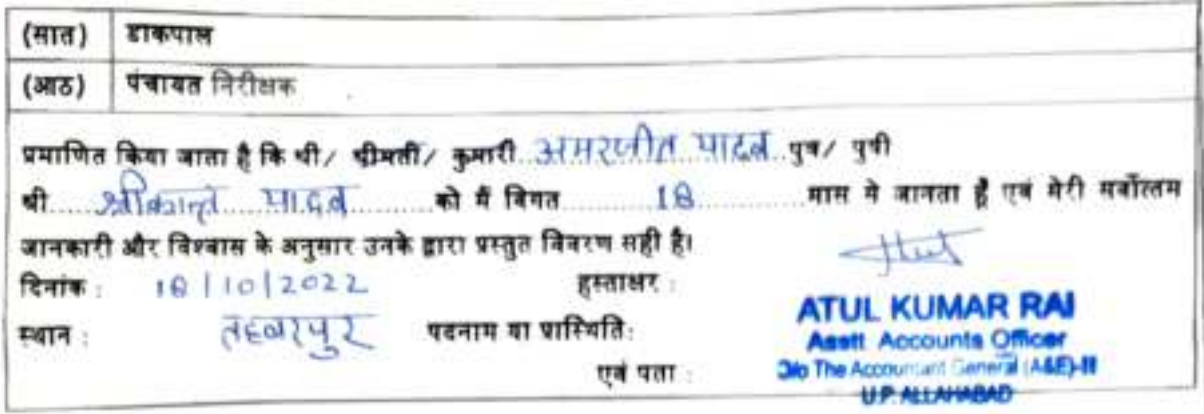 (सात) डाकपाल
(आठ) पंचायत निरीक्षक
प्रमाणित किया जाता है कि श्री/ श्रीमती/ कुमारी अमरजीत यादव पुत्र/ पुत्री
श्री श्रीकान्त यादव को मैं विगत 18 मास से जानता हूँ एवं मेरी सर्वोत्तम
जानकारी और विश्वास के अनुसार उनके द्वारा प्रस्तुत विवरण सही है।
दिनांक : 18/10/2022 हस्ताक्षर :
स्थान : तहबरपुर पदनाम या प्रास्थिति:
ATUL KUMAR RAI
Asstt Accounts Officer
एवं पता :
O/o The Accountant General (A&E)-II
U.P. ALLAHABAD